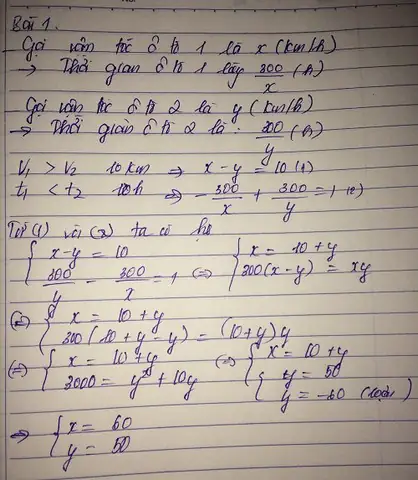 Bài 1.
- Gọi vân tốc ô tô 1 là x (km/h)
→ Thời gian ô tô 1 lấy 300/x (h)
Gọi vân tốc ô tô 2 là y (km/h)
→ Thời gian ô tô 2 là: 300/y (h)
V₁ > V₂ 10 km ⇒ x - y = 10 (1)
t₁ < t₂ h ⇒ - 300/x + 300/y = 1 (2)
Từ (1) và (2) ta có hệ
{ x - y = 10 ; 300/y - 300/x = 1 (=) { x = 10 + y ; 300(x - y) = xy
(=) { x = 10 + y ; 300(10 + y - y) = (10 + y)y
(=) { x = 10 + y ; 3000 = y² + 10y (=) { x = 10 + y ; { y = 50 ; y = -60 (loại)
⇒ { x = 60 ; y = 50